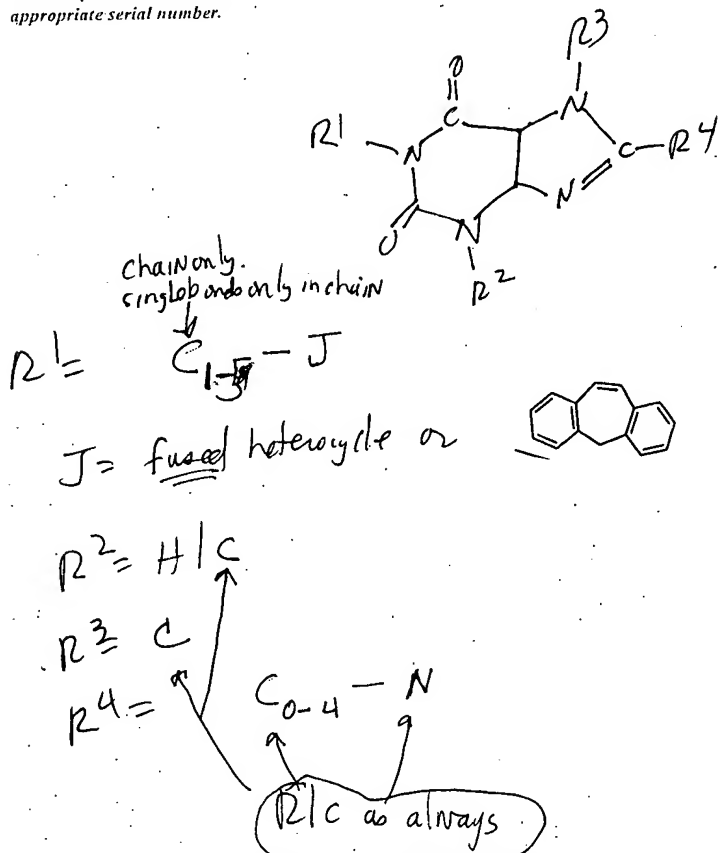 appropriate serial number.
R3
O
||
C
N
R1
N
C-R4
N
O
N
R2
chain only.
single bonds only in chain
R1= C1-5 - J
J= fused heterocycle or
R2= H|C
R3= C
R4= C0-4 - N
R|C as always